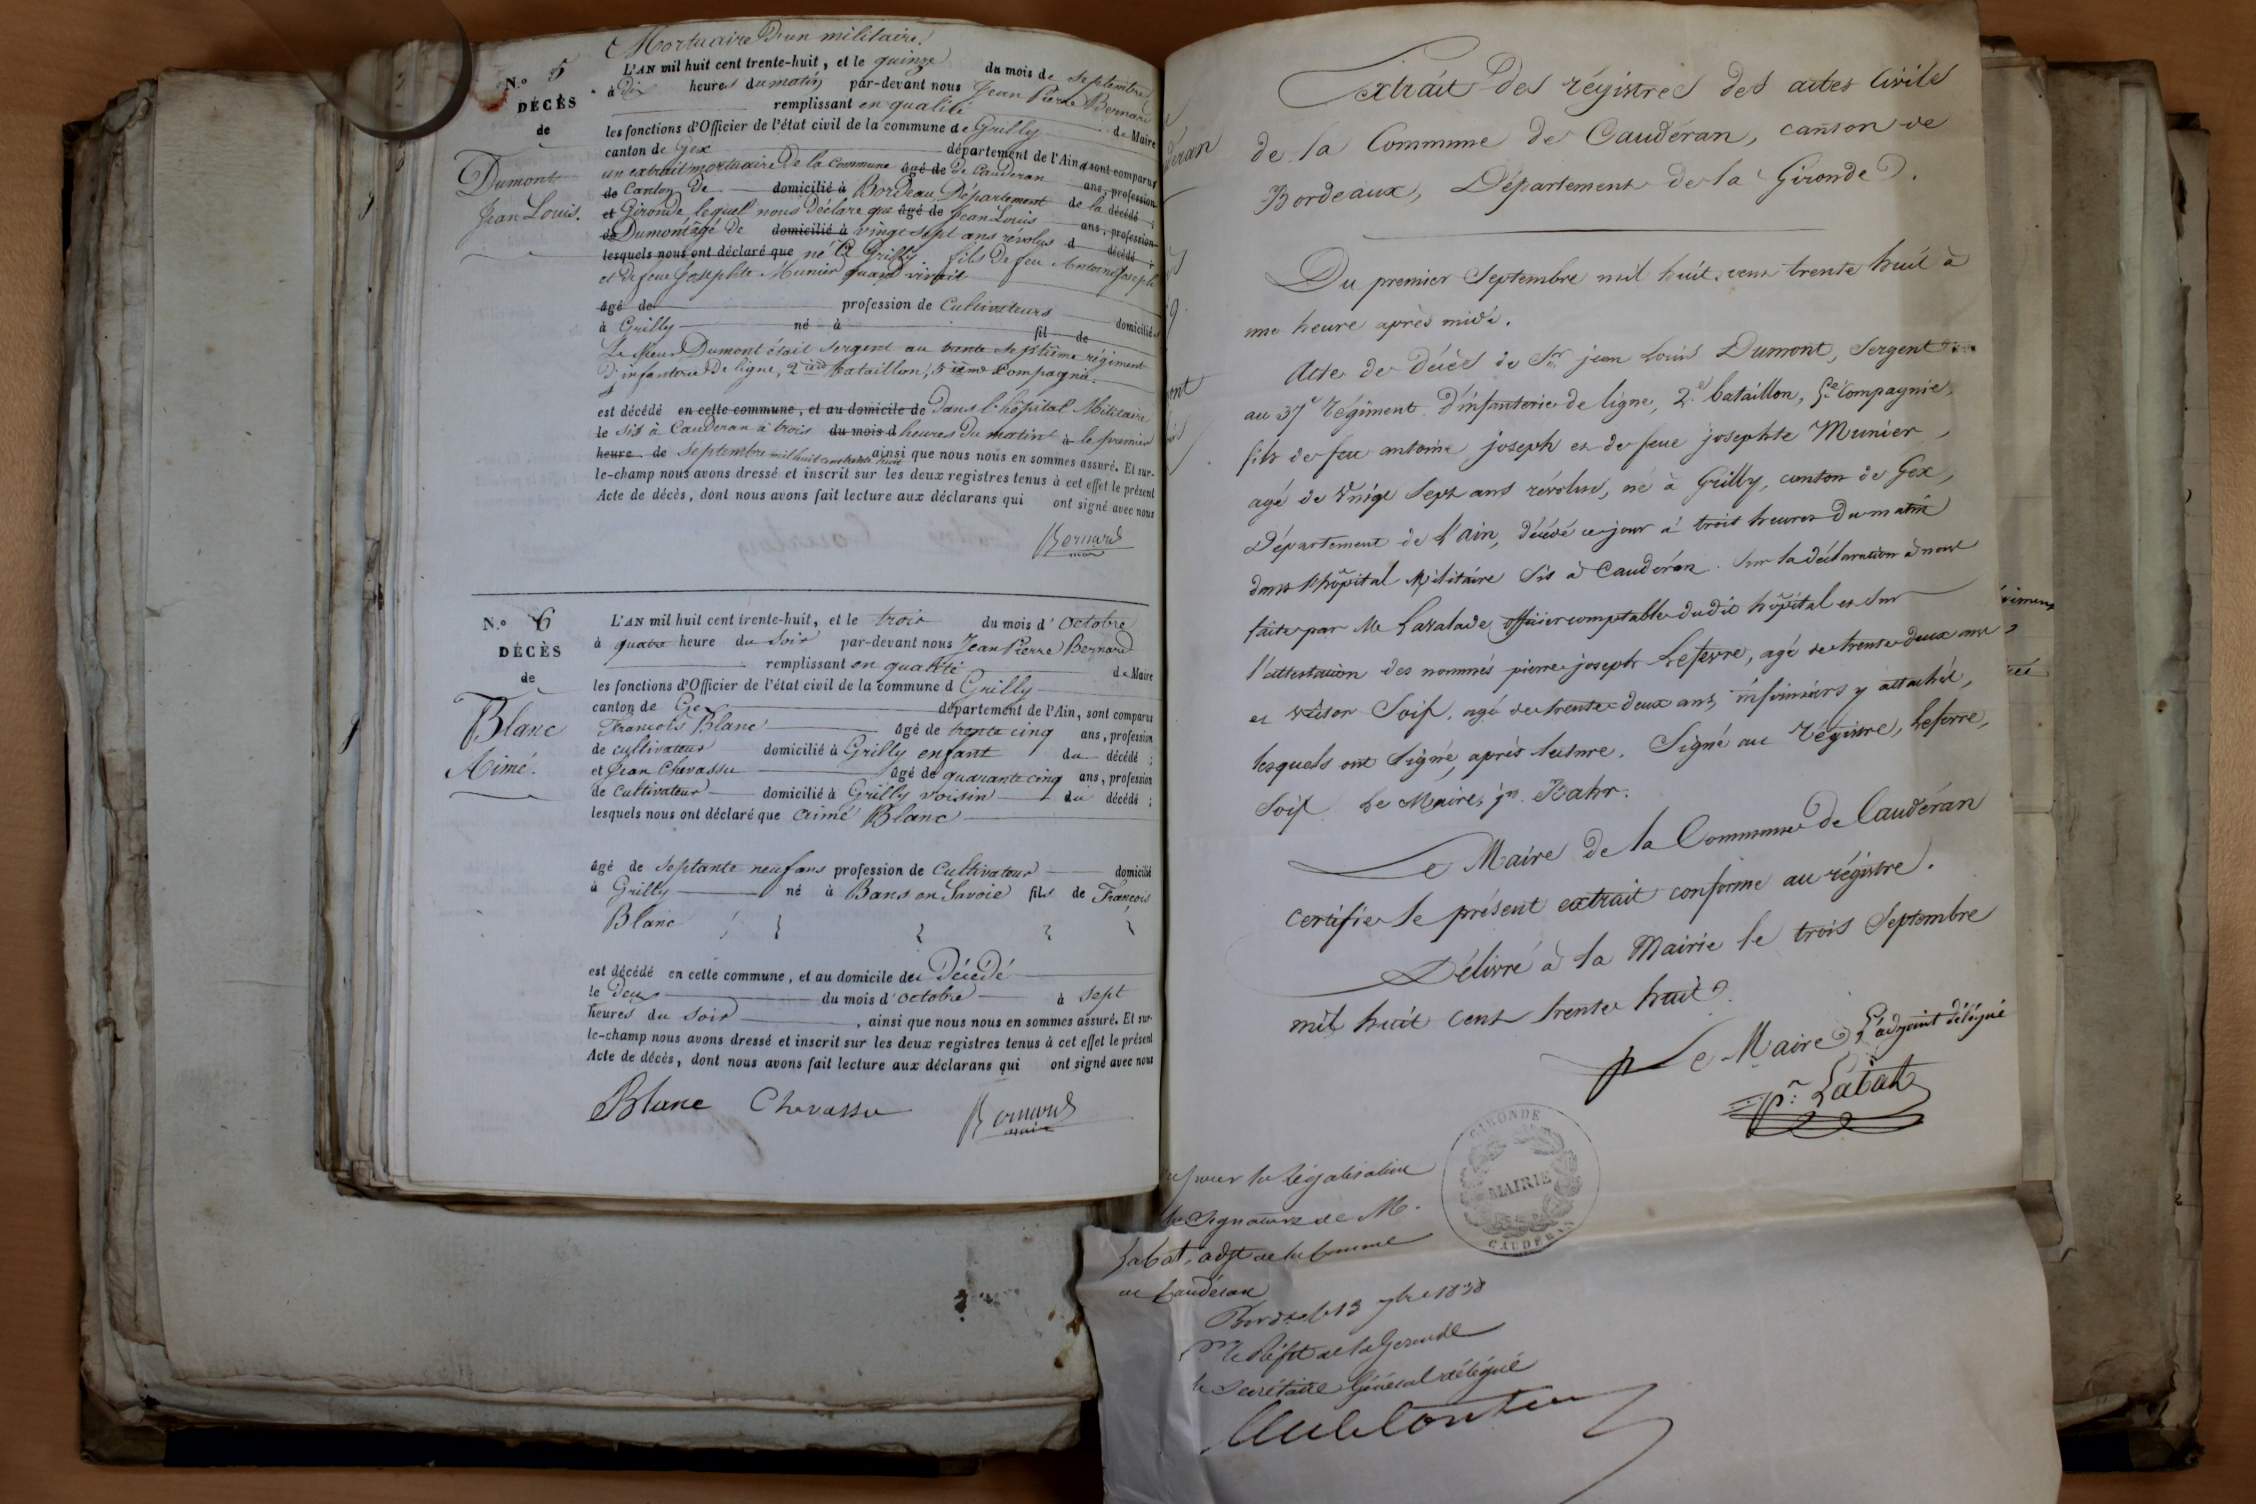 Mortuaire d'un militaire.
N.º 5
DÉCÈS
de
Dumont
Jean Louis.
L'AN mil huit cent trente-huit, et le quinze du mois de septembre
à dix heures du matin par-devant nous Jean Pierre Bernard
remplissant en qualité de Maire
les fonctions d'Officier de l'état civil de la commune de Grilly
canton de Gex département de l'Ain, sont comparus
un extrait mortuaire de la commune âgé de de Caudéran ans, profession
de Canton de domicilié à Bordeau, Département de la décédé ;
et Gironde, lequel nous déclare que âgé de Jean Louis ans, profession
de Dumont âgé de domicilié à vingt sept ans révolus d décédé ;
lesquels nous ont déclaré que né à Grilly fils de feu Antoine Joseph
et de feue Josephte Munier quand vivait
âgé de profession de Cultivateurs domiciliés
à Grilly né à fil de
Le sieur Dumont était sergent au trente septième régiment
d'infanterie de ligne, 2ième bataillon, 5ième compagnie.
est décédé en cette commune, et au domicile de dans l'hôpital Militaire
le sis à Caudéran à trois du mois d heures du matin à le premier
heure de septembre mil huit cent trente huit ainsi que nous nous en sommes assuré. Et sur-
le-champ nous avons dressé et inscrit sur les deux registres tenus à cet effet le présent
Acte de décès, dont nous avons fait lecture aux déclarans qui ont signé avec nous
Bernard
maire
N.º 6
DÉCÈS
de
Blanc
Aimé.
L'AN mil huit cent trente-huit, et le trois du mois d'octobre
à quatre heure du soir par-devant nous Jean Pierre Bernard
remplissant en qualité de Maire
les fonctions d'Officier de l'état civil de la commune d Grilly
canton de Gex département de l'Ain, sont comparus
François Blanc âgé de trente cinq ans, profession
de cultivateur domicilié à Grilly enfant du décédé ;
et Jean Chevassu âgé de quarante cinq ans, profession
de Cultivateur domicilié à Grilly voisin du décédé ;
lesquels nous ont déclaré que aimé Blanc
âgé de septante neuf ans profession de Cultivateur domicilié
à Grilly né à Bans en Savoie fils de François
Blanc
est décédé en cette commune, et au domicile du Décédé
le deux du mois d'octobre à sept
heures du soir, ainsi que nous nous en sommes assuré. Et sur-
le-champ nous avons dressé et inscrit sur les deux registres tenus à cet effet le présent
Acte de décès, dont nous avons fait lecture aux déclarans qui ont signé avec nous
Blanc Chevassu Bernard
maire
Extrait des régistres des actes Civils
de la Commune de Caudéran, canton de
Bordeaux, Département de la Gironde.
Du premier Septembre mil huit cent trente huit à
une heure après midi.
Acte de décès de Sr jean Louis Dumont, Sergent
au 37e Régiment d'infanterie de ligne, 2e bataillon, 5e Compagnie,
fils de feu antoine joseph et de feue josephte Munier,
agé de vingt Sept ans révolus, né à Grilly, canton de Gex,
Département de l'ain, décédé ce jour à trois heures du matin
dans l'hôpital Militaire sis à Caudéran. Sur la déclaration à nous
faite par Mr Lavalade officier comptable dudit hôpital et sur
l'attestation des nommés pierre joseph Lefevre, agé de trente deux ans
et Soif, agé de trente deux ans, infirmiers y attachés,
lesquels ont Signé, après lecture. Signé au Régistre, Lefevre,
Soif Le Maire, jn. Kahr.
Le Maire de la Commune de Caudéran
certifie le présent extrait conforme au régistre.
Délivré à la Mairie le trois Septembre
mil huit cent trente huit.
pr Le Maire, L'adjoint délégué
pr. Labat
GIRONDE
MAIRIE
CAUDERAN
pour la légalisation
la signature de M.
Labat, adjt de la Commune
de Caudéran
Bordx le 13 7bre 1838
Le Préfet de la Gironde
le Secrétaire Général délégué